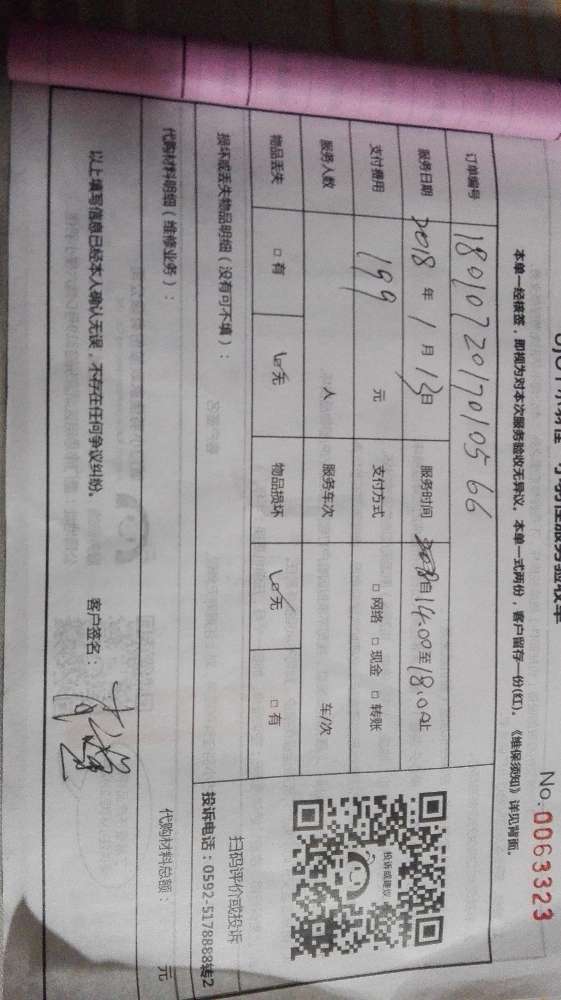 服务验收单
No. 0063323
本单一经核签，即视为对本次服务验收无异议。本单一式两份，客户留存一份(红)。《维保须知》详见背面。
订单编号 18010720170105 66
服务日期 2018 年 1 月 13 日 服务时间 自 14.00 至 18.0 止
支付费用 199 元 支付方式 □ 网络 □ 现金 □ 转账
服务人数 人 服务车次 车/次
物品丢失 □ 有 无 物品损坏 无 □ 有
损坏或丢失物品明细（没有可不填）：
投诉或建议
扫码评价或投诉
投诉电话：0592-5178888转2
代购材料明细（维修业务）： 代购材料总额： 元
以上填写信息已经本人确认无误，不存在任何争议纠纷。 客户签名：